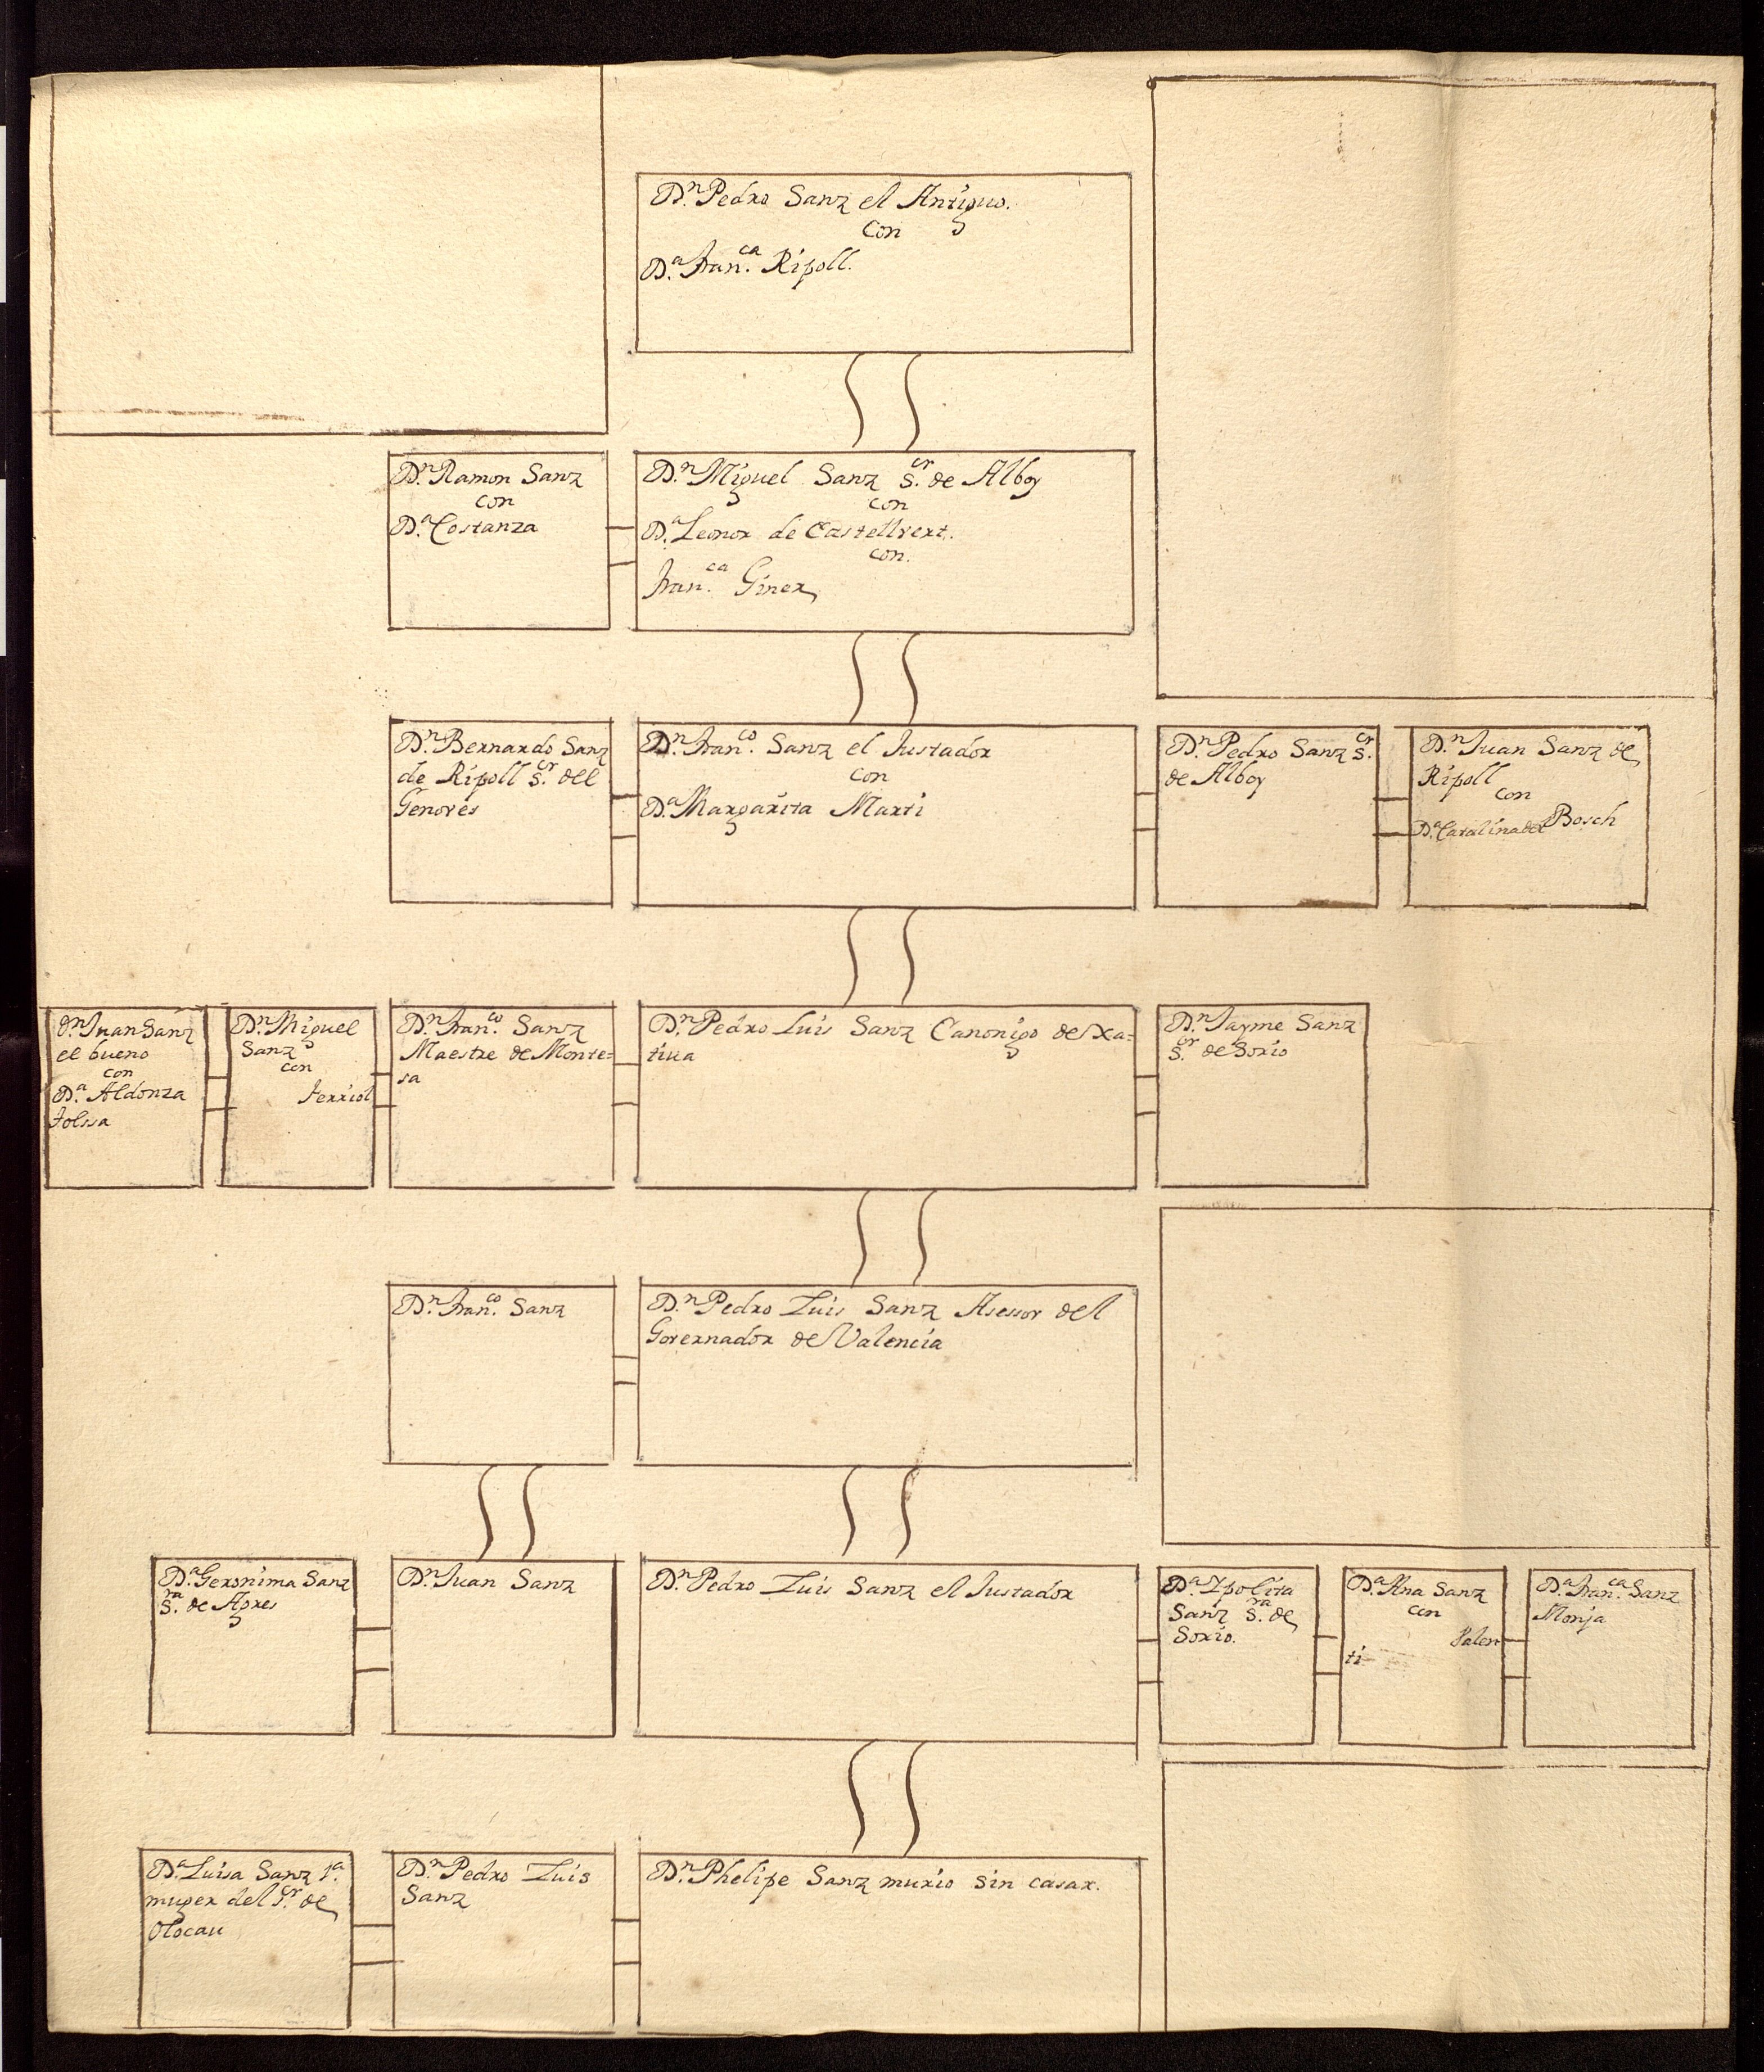 Dn. Pedro Sanz el Antiguo.
con
Da. Fran.ca Ripoll.
Dn. Ramon Sanz
con
Da. Costanza
Dn. Miguel Sanz S.or de Alboy
con
Da. Leonor de Castellvert.
con.
Fran.ca Giner
Dn. Bernardo Sanz
de Ripoll S.or del
Genovés
Dn. Fran.co Sanz el Justador
con
Da. Margarita Marti
Dn. Pedro Sanz S.or
de Alboy
Dn. Juan Sanz de
Ripoll
con
Da. Catalina del Bosch
Dn. Juan Sanz
el bueno
con
Da. Aldonza
Folssa
Dn. Miguel
Sanz
con
Ferriol
Dn. Fran.co Sanz
Maestre de Monte=
sa
Dn. Pedro Luis Sanz Canonigo de Xa=
tiva
Dn. Jayme Sanz
S.or de Sorio
Dn. Fran.co Sanz
Dn. Pedro Luis Sanz Asessor del
Governador de Valencia
Da. Geronima Sanz
S.ra de Agres
Dn. Juan Sanz
Dn. Pedro Luis Sanz el Justador
Da. Ipolita
Sanz S.ra de
Sorio.
Da. Ana Sanz
con
Valen
ti
Da. Fran.ca Sanz
Monja
Da. Luisa Sanz 1a.
muger del S.or de
Olocau
Dn. Pedro Luis
Sanz
Dn. Phelipe Sanz murio sin casar.